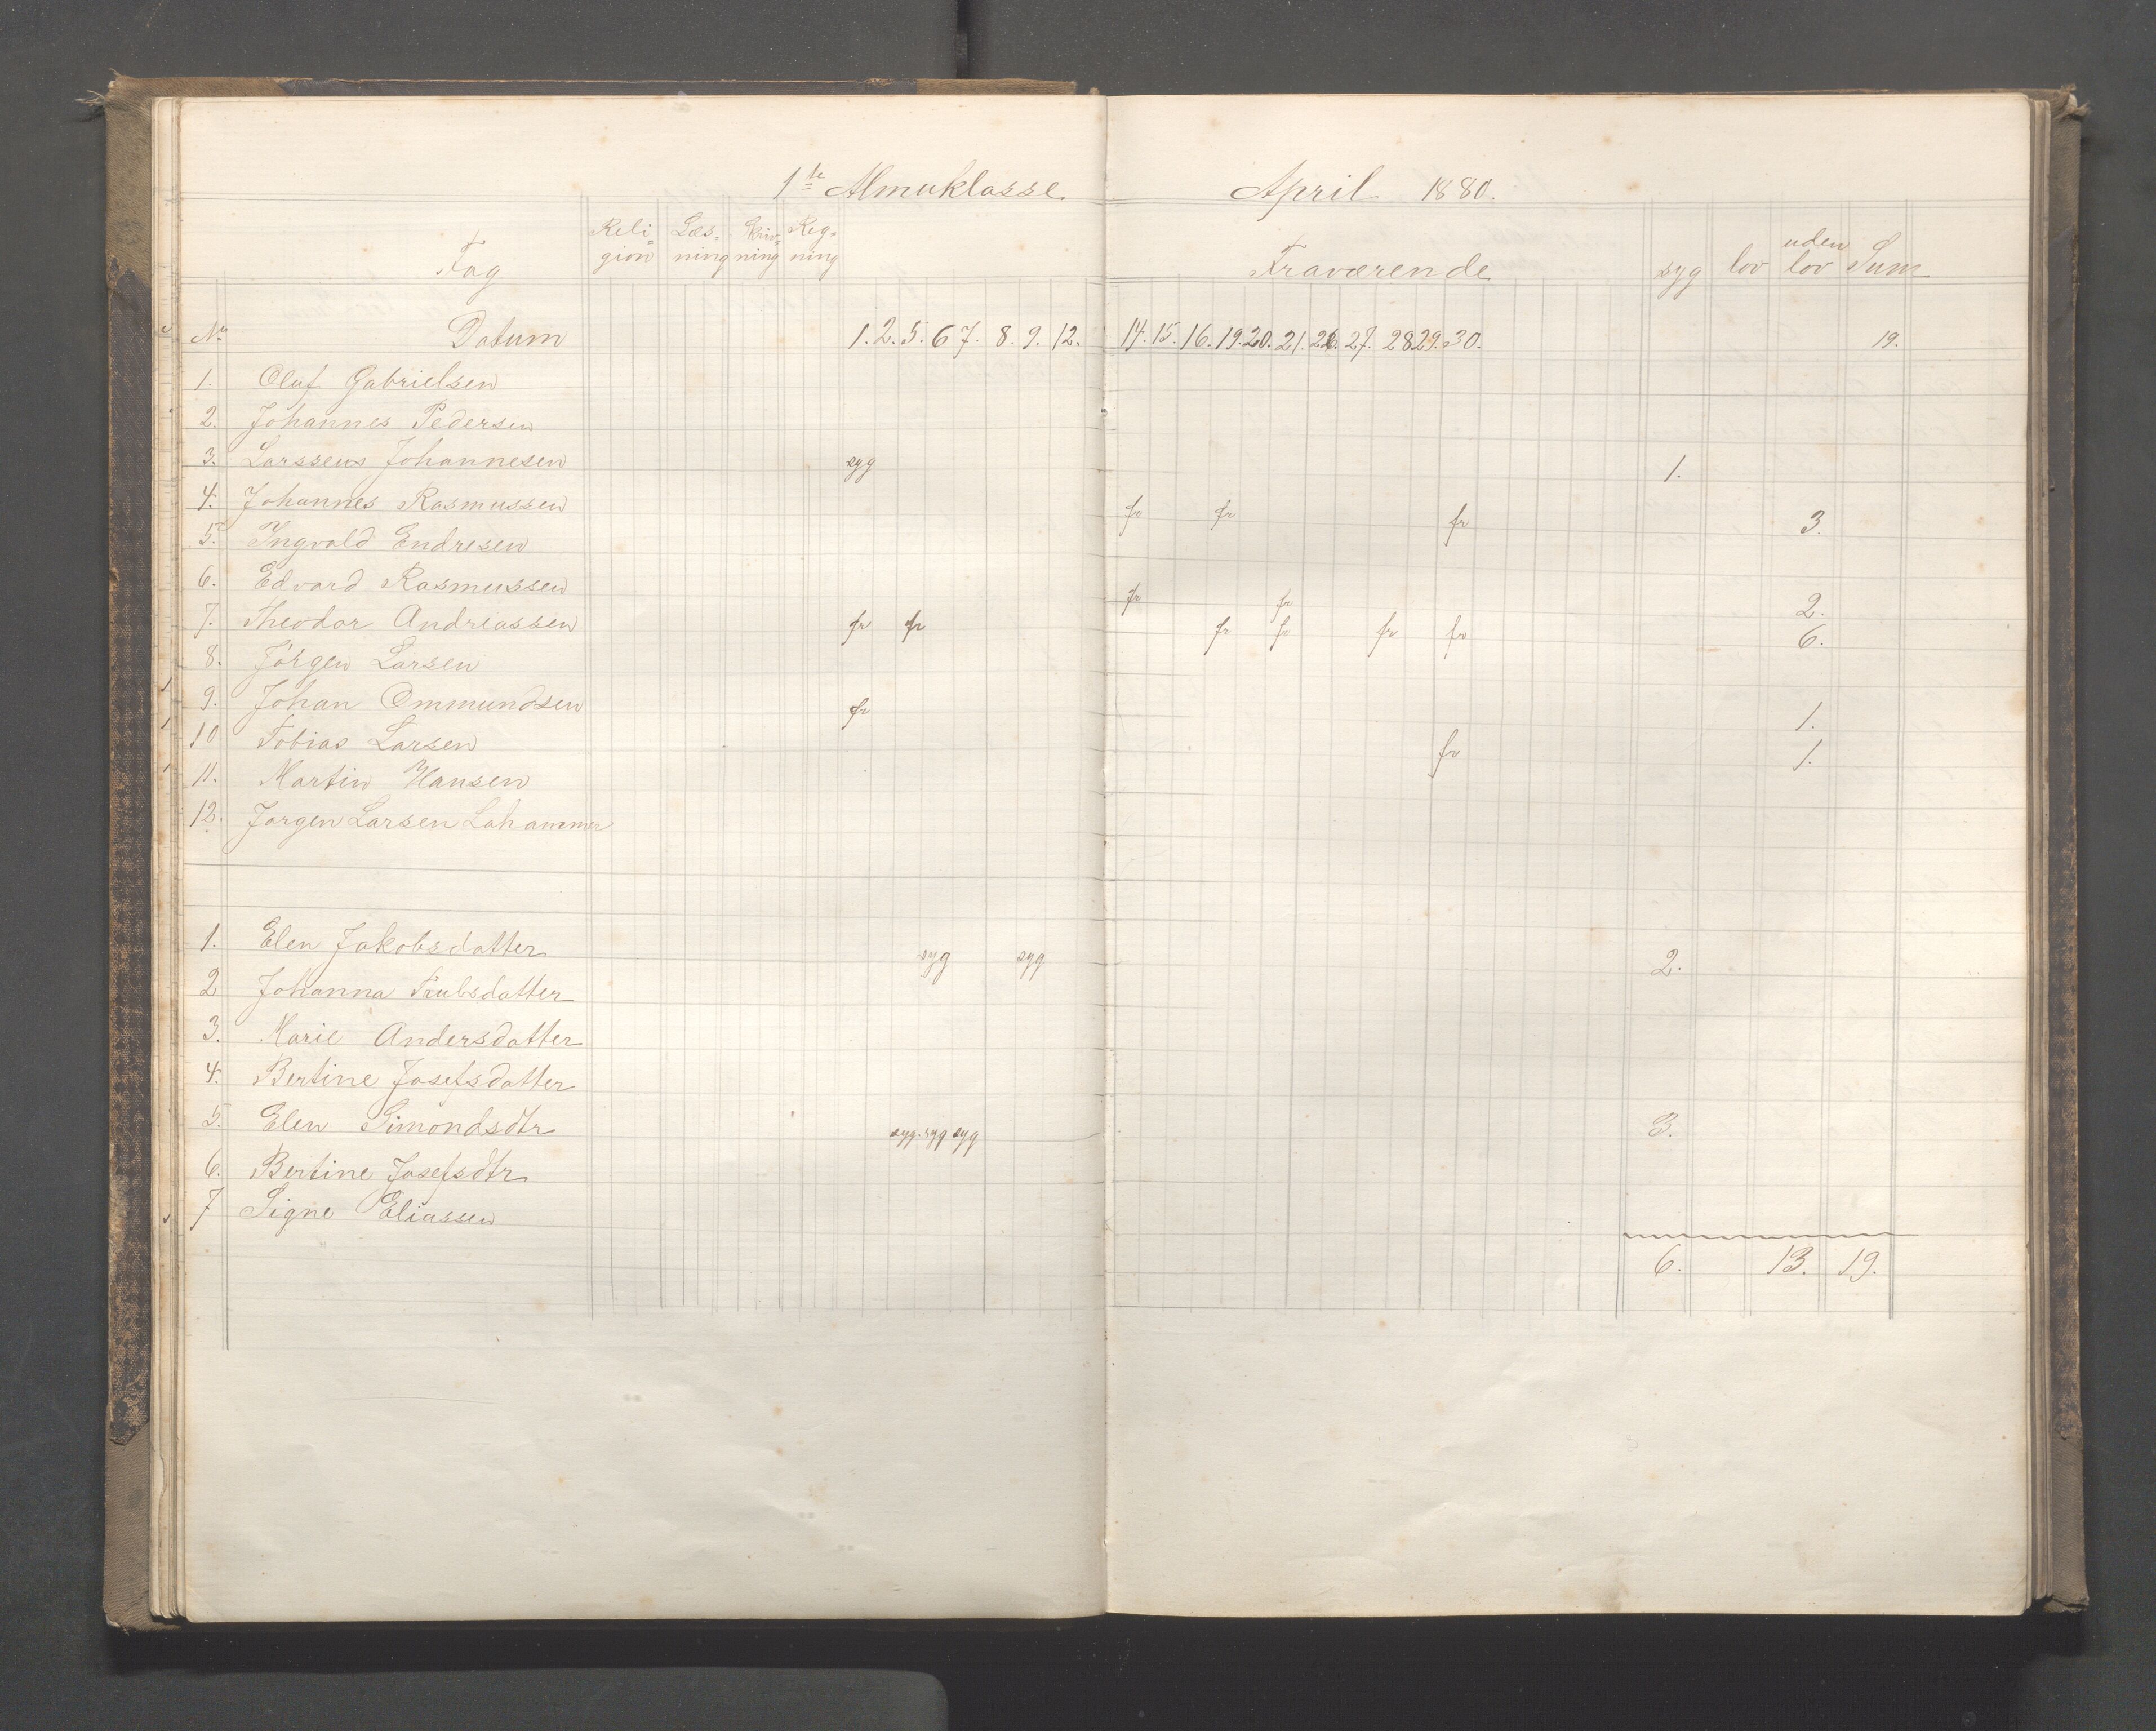 1ste Almuklasse April 1880.
Fag Religion Læsning Skrivning Regning Fraværende syg lov uden lov Sum
No Datum 1. 2. 5. 6 7. 8. 9. 12. 14. 15. 16. 19. 20. 21. 26. 27. 28 29. 30. 19.
1. Olaf Gabrielsen
2. Johannes Pedersen
3. Larsseus Johannesen syg 1.
4. Johannes Rasmussen fr fr fr 3.
5. Ingvald Endresen
6. Edvard Rasmussen fr fr 2.
7. Theodor Andreassen fr fr fr fr fr fr 6.
8. Jörgen Larsen
9. Johan Ommundsen fr 1.
10 Tobias Larsen fr 1.
11. Martin Hansen
12. Jørgen Larsen Lahammer
1. Elen Jakobsdatter syg syg 2.
2 Johanna Trulsdatter
3. Marie Andersdatter
4. Bertine Josefsdatter
5. Elen Simondsdtr syg. syg syg 3.
6. Bertine Josefsdtr
7 Signe Eliassen
6. 13. 19.